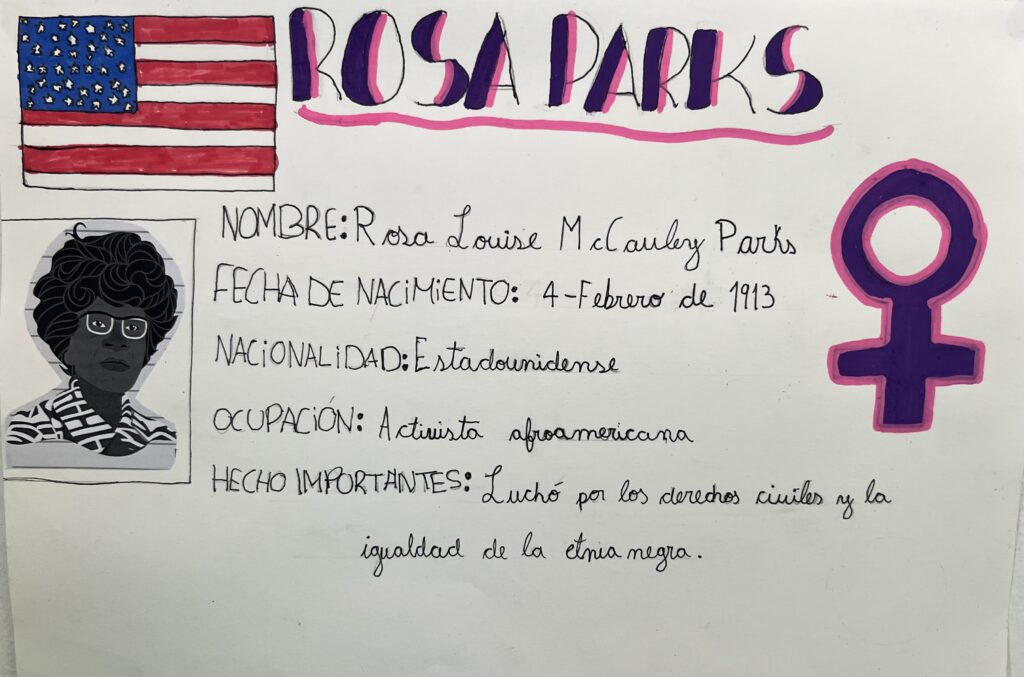 ROSA PARKS
NOMBRE: Rosa Louise McCauley Parks
FECHA DE NACIMIENTO: 4-Febrero de 1913
NACIONALIDAD: Estadounidense
OCUPACIÓN: Activista afroamericana
HECHO IMPORTANTES: Luchó por los derechos civiles y la
igualdad de la etnia negra.